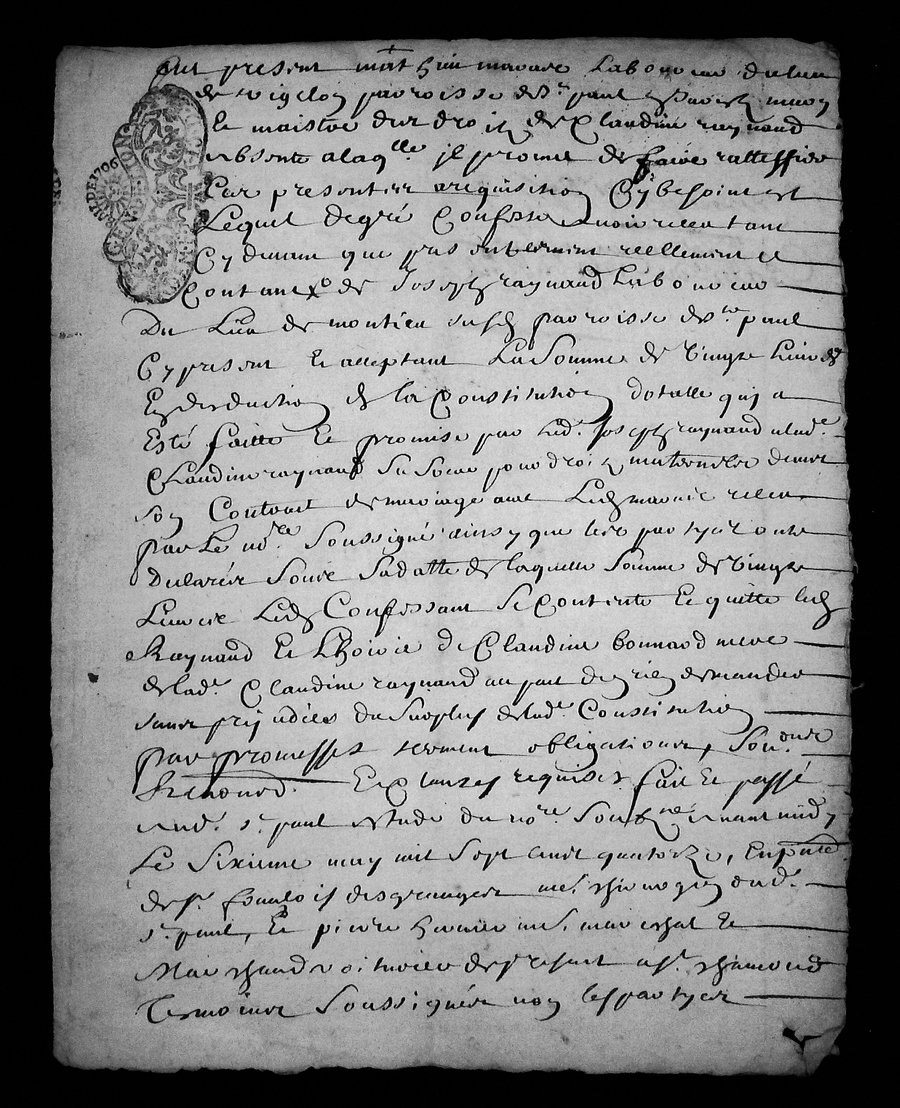 fut present mathieu mavare Laboureur du lieu
de parroisse de St paul mary
Le maistre des droitz de Claudine raynaud
absente a laqlle jl promet de faire rattiffier
Car presentes a requisition sy besoint est
Lequel de gré Confesse avoir receu tant
Cy devant que presentement reellement et
Contant de Joseph raynaud Laboureur
Du Lieu de montieu susd parroisse de St paul
Cy present Et acceptant La Somme de Vingt
En deduction de la Constitution dotalle quj a
Esté faitte Et promise par led. Joseph raynaud a lade
Claudine raynaud Sa Soeur pour droitz maternelz dans
son Contract de mariage avec Led mavare receu
par Le nore Soussigné ainsy que les partyes ont
declarés Sous Sa datte de laquelle Somme de Vingt
Livres Led Confessant Se Contente Et quitte led
Raynaud Et L'hoirie de Claudine bonnard mere
de lade Claudine raynaud au pact de rien demander
sans prejudice du Surplus de lade Constitution
par promesses serment obligations, Soumons
Renoncd. Et Clauses requises fait Et passé
aud. St paul Estude du nore Soubzne avant midy
Le Sixieme may mil Sept cent quatorze, En prnce
de Sr francois desgranges me. chirurgien aud.
St paul, Et pierre me. mareschal Et
Marchand voiturier de present a St chamond
Tesmoins Soussignés non les partyes
GEN DE LION